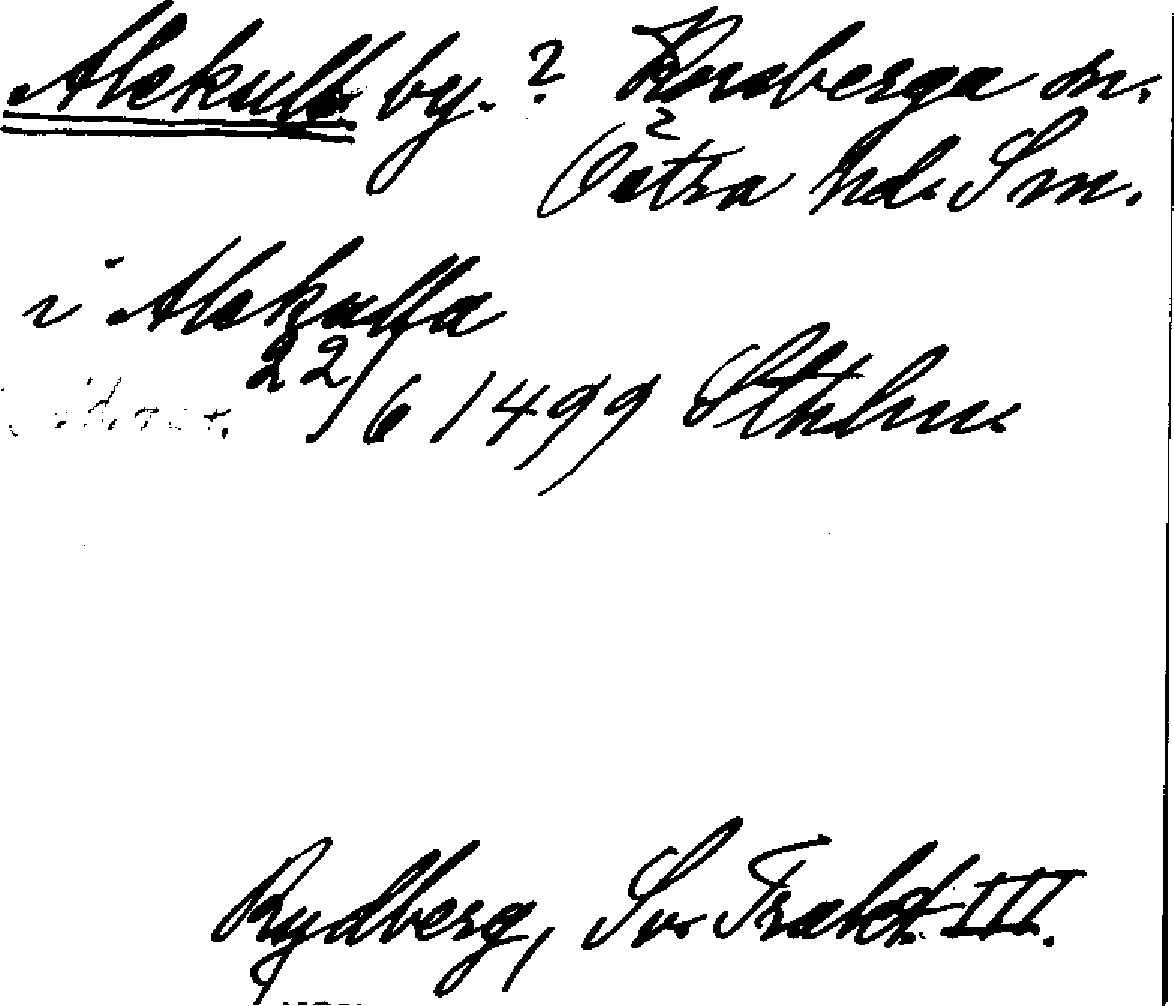 Alekull by. ? Korsberga sn.
Östra hd. Sm.
i Alekulla
22/6 1499 Sthlm.
Rydberg, Sv. Trakt. III.